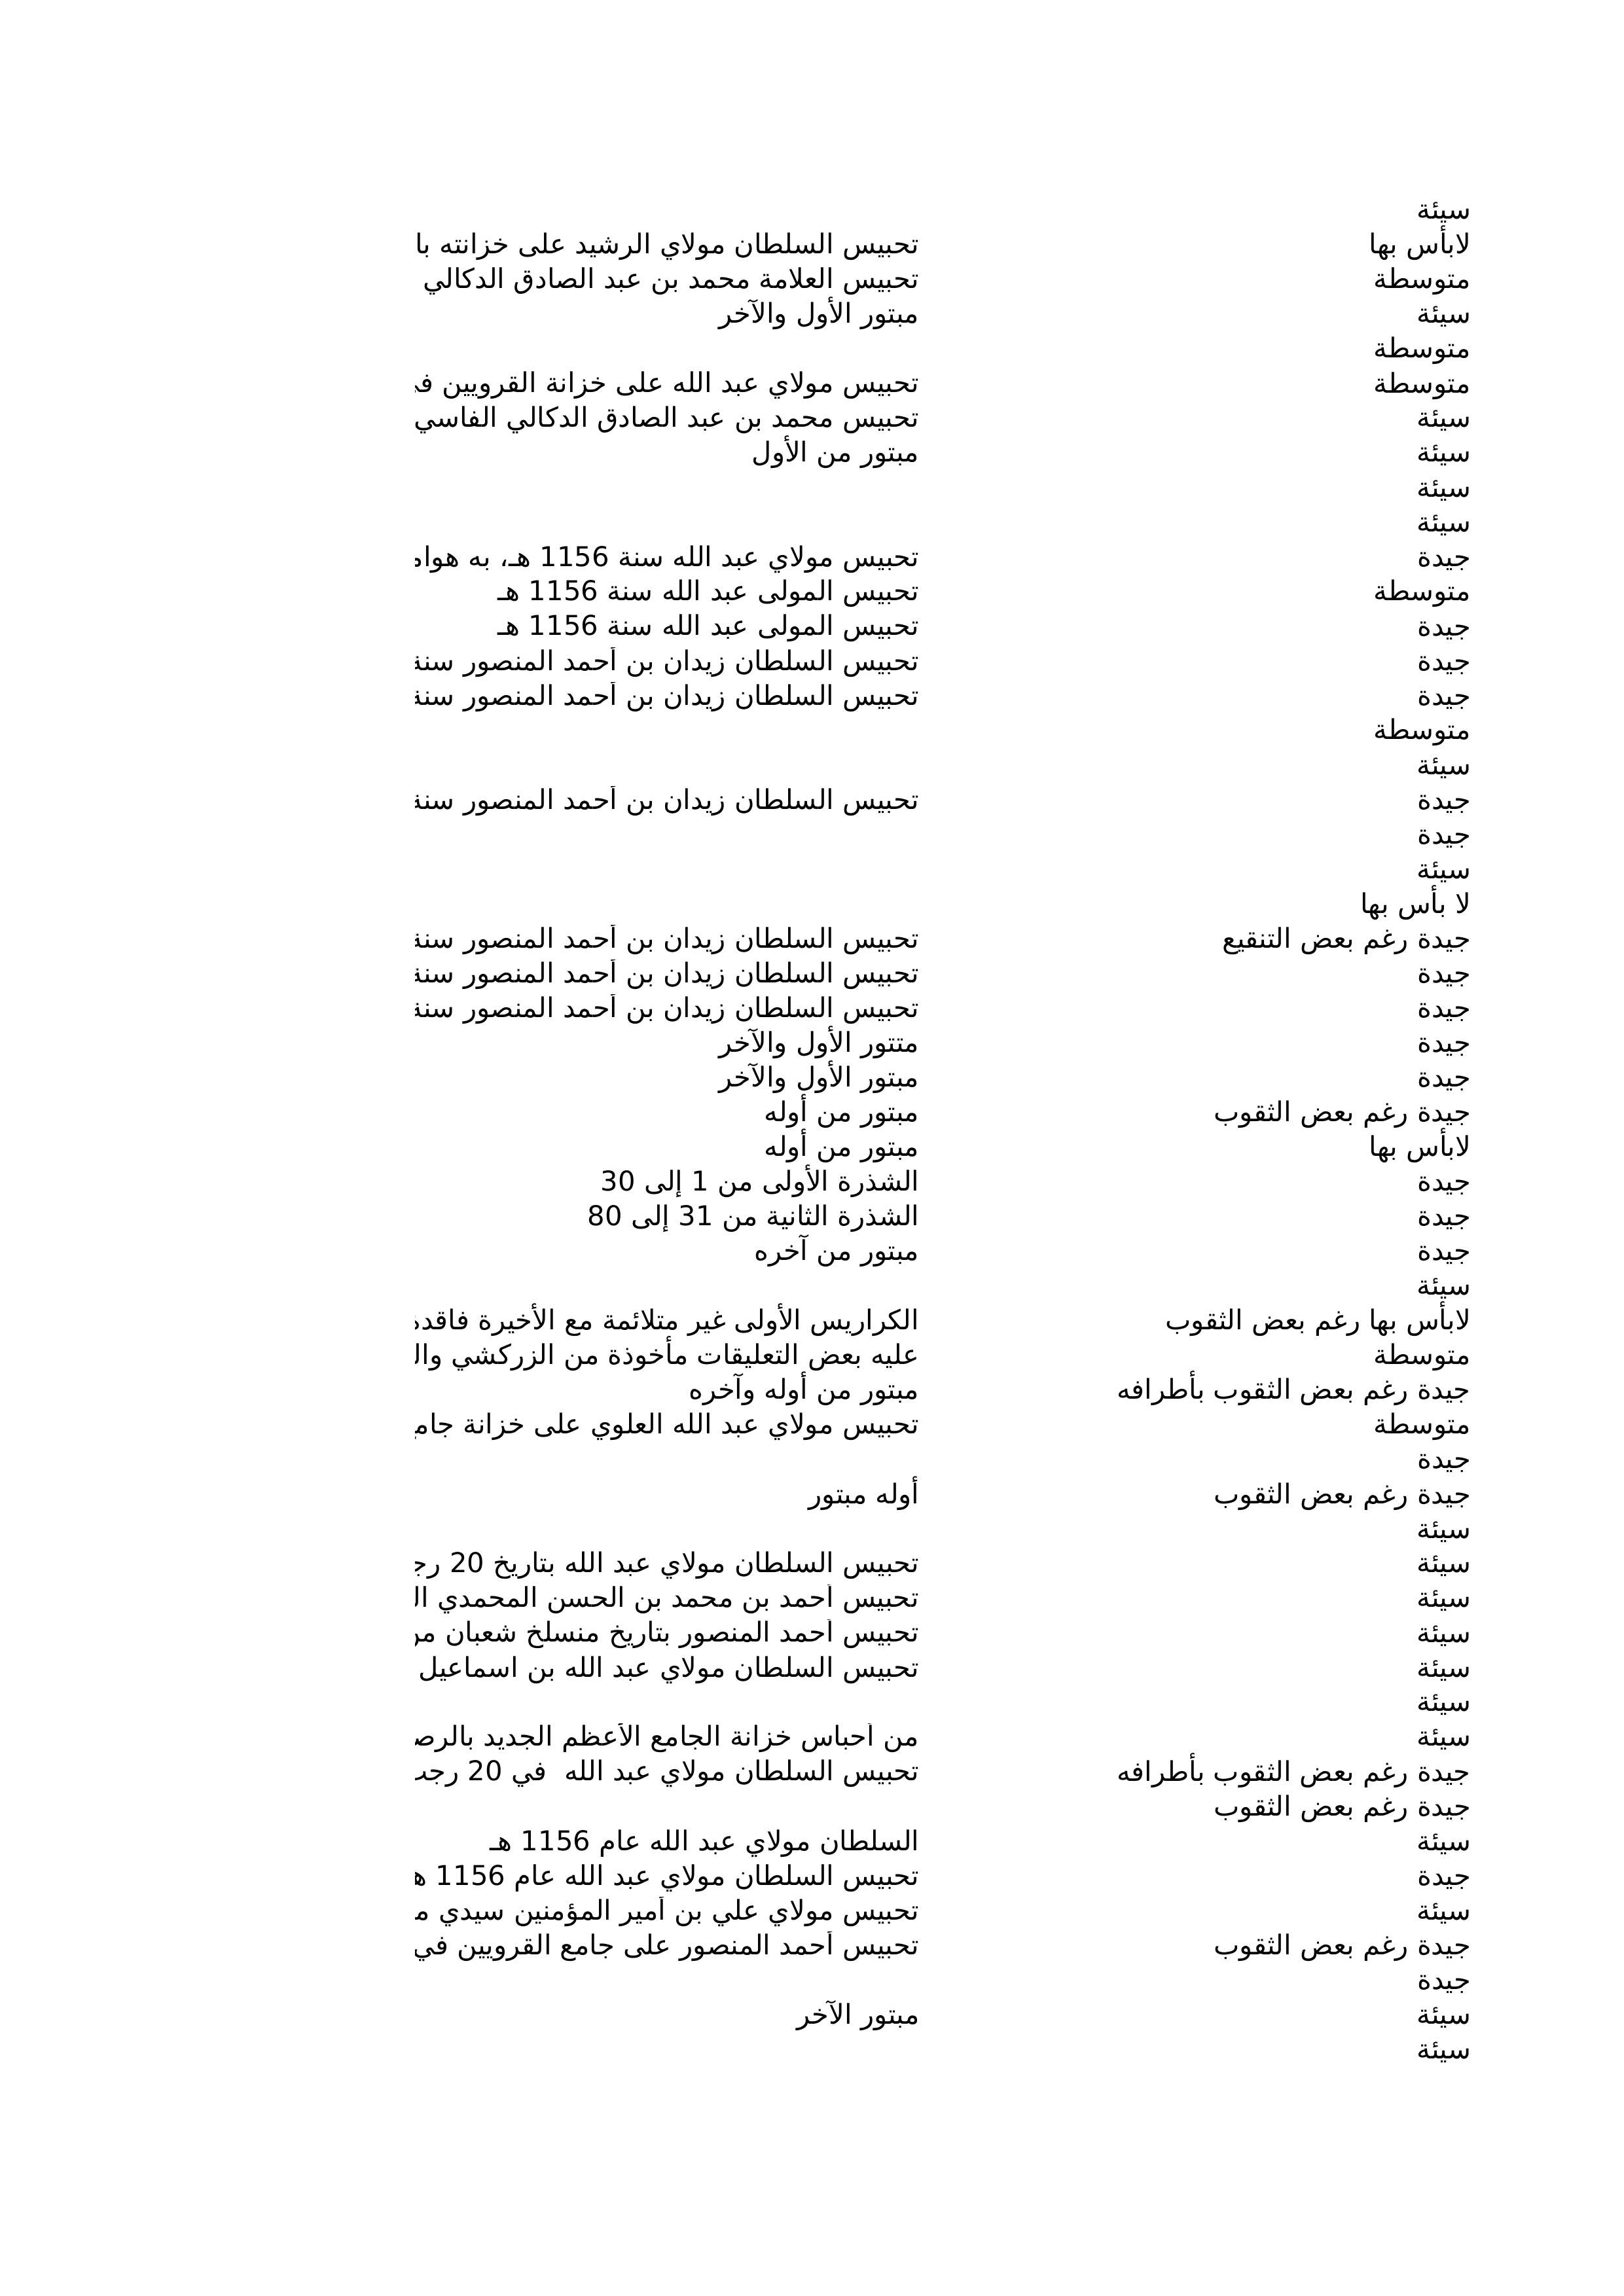 سيئة
لابأس بها تحبيس السلطان مولاي الرشيد على خزانته
متوسطة تحبيس العلامة محمد بن عبد الصادق الدكالي
سيئة مبتور الأول والآخر
متوسطة
متوسطة تحبيس مولاي عبد الله على خزانة القرويين
سيئة تحبيس محمد بن عبد الصادق الدكالي الفاسي
سيئة مبتور من الأول
سيئة
سيئة
جيدة تحبيس مولاي عبد الله سنة 1156 هـ، به
متوسطة تحبيس المولى عبد الله سنة 1156 هـ
جيدة تحبيس المولى عبد الله سنة 1156 هـ
جيدة تحبيس السلطان زيدان بن أحمد المنصور سنة
جيدة تحبيس السلطان زيدان بن أحمد المنصور سنة
متوسطة
سيئة
جيدة تحبيس السلطان زيدان بن أحمد المنصور سنة
جيدة
سيئة
لا بأس بها
جيدة رغم بعض التنقيع تحبيس السلطان زيدان بن أحمد المنصور سنة
جيدة تحبيس السلطان زيدان بن أحمد المنصور سنة
جيدة تحبيس السلطان زيدان بن أحمد المنصور سنة
جيدة متتور الأول والآخر
جيدة مبتور الأول والآخر
جيدة رغم بعض الثقوب مبتور من أوله
لابأس بها مبتور من أوله
جيدة الشذرة الأولى من 1 إلى 30
جيدة الشذرة الثانية من 31 إلى 80
جيدة مبتور من آخره
سيئة
لابأس بها رغم بعض الثقوب الكراريس الأولى غير متلائمة مع الأخيرة
متوسطة عليه بعض التعليقات مأخوذة من الزركشي
جيدة رغم بعض الثقوب بأطرافه مبتور من أوله وآخره
متوسطة تحبيس مولاي عبد الله العلوي على خزانة
جيدة
جيدة رغم بعض الثقوب أوله مبتور
سيئة
سيئة تحبيس السلطان مولاي عبد الله بتاريخ 20
سيئة تحبيس أحمد بن محمد بن الحسن المحمدي
سيئة تحبيس أحمد المنصور بتاريخ منسلخ شعبان
سيئة تحبيس السلطان مولاي عبد الله بن اسماعيل
سيئة
سيئة من أحباس خزانة الجامع الأعظم الجديد
جيدة رغم بعض الثقوب بأطرافه تحبيس السلطان مولاي عبد الله في 20
جيدة رغم بعض الثقوب
سيئة السلطان مولاي عبد الله عام 1156 هـ
جيدة تحبيس السلطان مولاي عبد الله عام 1156 هـ
سيئة تحبيس مولاي علي بن أمير المؤمنين سيدي
جيدة رغم بعض الثقوب تحبيس أحمد المنصور على جامع القرويين في
جيدة
سيئة مبتور الآخر
سيئة